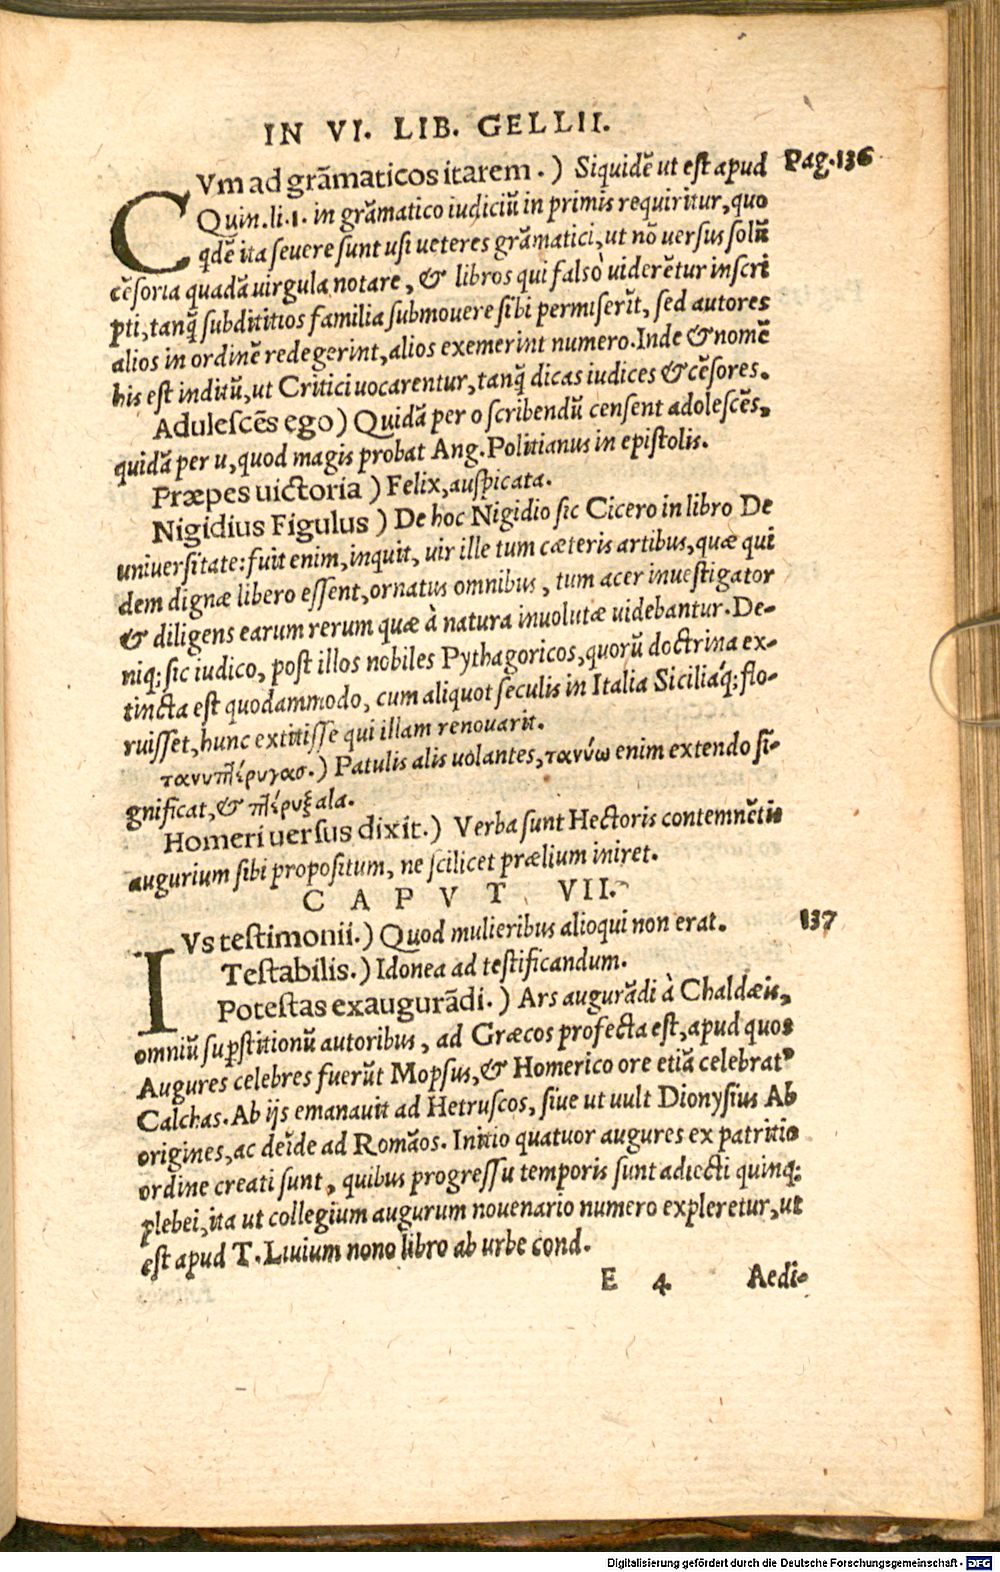 IN VI. LIB. GELLII.
CVm ad grāmaticos itarem.) Siquidē ut est apud Pag.136
Quin.li.1. in grāmatico iudiciū in primis requiritur, quo
qdē ita severe sunt usi ueteres grāmatici, ut nō uersus solū
cēsoria quadā uirgula notare, & libros qui falso uiderētur inscri
pti, tanq̃ subdititios familia submouere sibi permiserīt, sed autores
alios in ordinē redegerint, alios exemerint numero. Inde & nomē
his est inditū, ut Critici uocarentur, tanq̃ dicas iudices & cēsores.
Adulescēs ego) Quidā per o scribendū censent adolescēs,
quidā per u, quod magis probat Ang. Politianus in epistolis.
Præpes uictoria) Felix, auspicata.
Nigidius Figulus) De hoc Nigidio sic Cicero in libro De
universitate: fuit enim, inquit, vir ille tum cæteris artibus, quæ qui
dem dignæ libero essent, ornatus omnibus, tum acer inuestigator
& diligens earum rerum quæ à natura inuolutæ uidebantur. De-
niq; sic iudico, post illos nobiles Pythagoricos, quorū doctrina ex-
tincta est quodammodo, cum aliquot seculis in Italia Siciliáq; flo-
ruisset, hunc extitisse qui illam renouarit.
τανυπτέρυγας.) Patulis alis uolantes, τανύω enim extendo si-
gnificat, & πτέρυξ ala.
Homeri uersus dixit.) Verba sunt Hectoris contemnētis
augurium sibi propositum, ne scilicet prælium iniret.
CAPVT VII.
IVs testimonii.) Quod mulieribus alioqui non erat. 137
Testabilis.) Idonea ad testificandum.
Potestas exaugurādi.) Ars augurādi à Chaldæis,
omniū suꝑstitionū autoribus, ad Græcos profecta est, apud quos
Augures celebres fuerūt Mopsus, & Homerico ore etiā celebratꝰ
Calchas. Ab ijs emanauit ad Hetruscos, siue ut uult Dionysius Ab
origines, ac deīde ad Romāos. Initio quatuor augures ex patritio
ordine creati sunt, quibus progressu temporis sunt adiecti quinq;
plebei, ita ut collegium augurum nouenario numero expleretur, ut
est apud T. Liuium nono libro ab urbe cond.
E 4 Aedi-
Digitalisierung gefördert durch die Deutsche Forschungsgemeinschaft - DFG